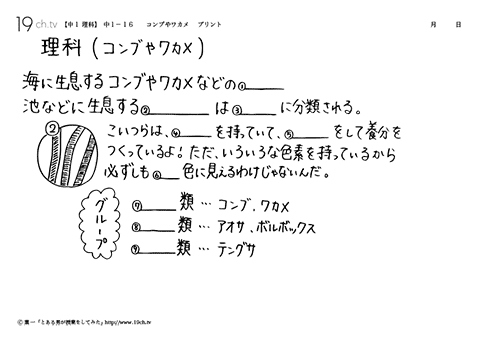 19ch.tv 【中1 理科】 中1-16 コンブやワカメ プリント 月 日
理科 (コンブやワカメ)
海に生息するコンブやワカメなどの①
池などに生息する② は③ に分類される。
②
こいつらは、④ を持っていて、⑤ をして養分を
つくっているよ!ただ、いろいろな色素を持っているから
必ずしも⑥ 色に見えるわけじゃないんだ。
グループ
⑦ 類 … コンブ、ワカメ
⑧ 類 … アオサ、ボルボックス
⑨ 類 … テングサ
© 葉一「とある男が授業をしてみた」http://www.19ch.tv